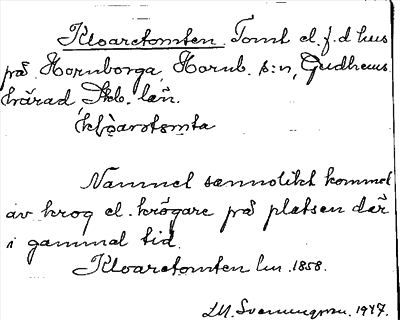 Kloaretomten. Tomt el. f. d hus
på Hornborga, Hornb. s:n, Gudhems
härad, Skb. län.
Namnet sannolikt kommet
av krog el. krögare på platsen där
i gammal tid.
Kloaretomten lm. 1858.
1947.